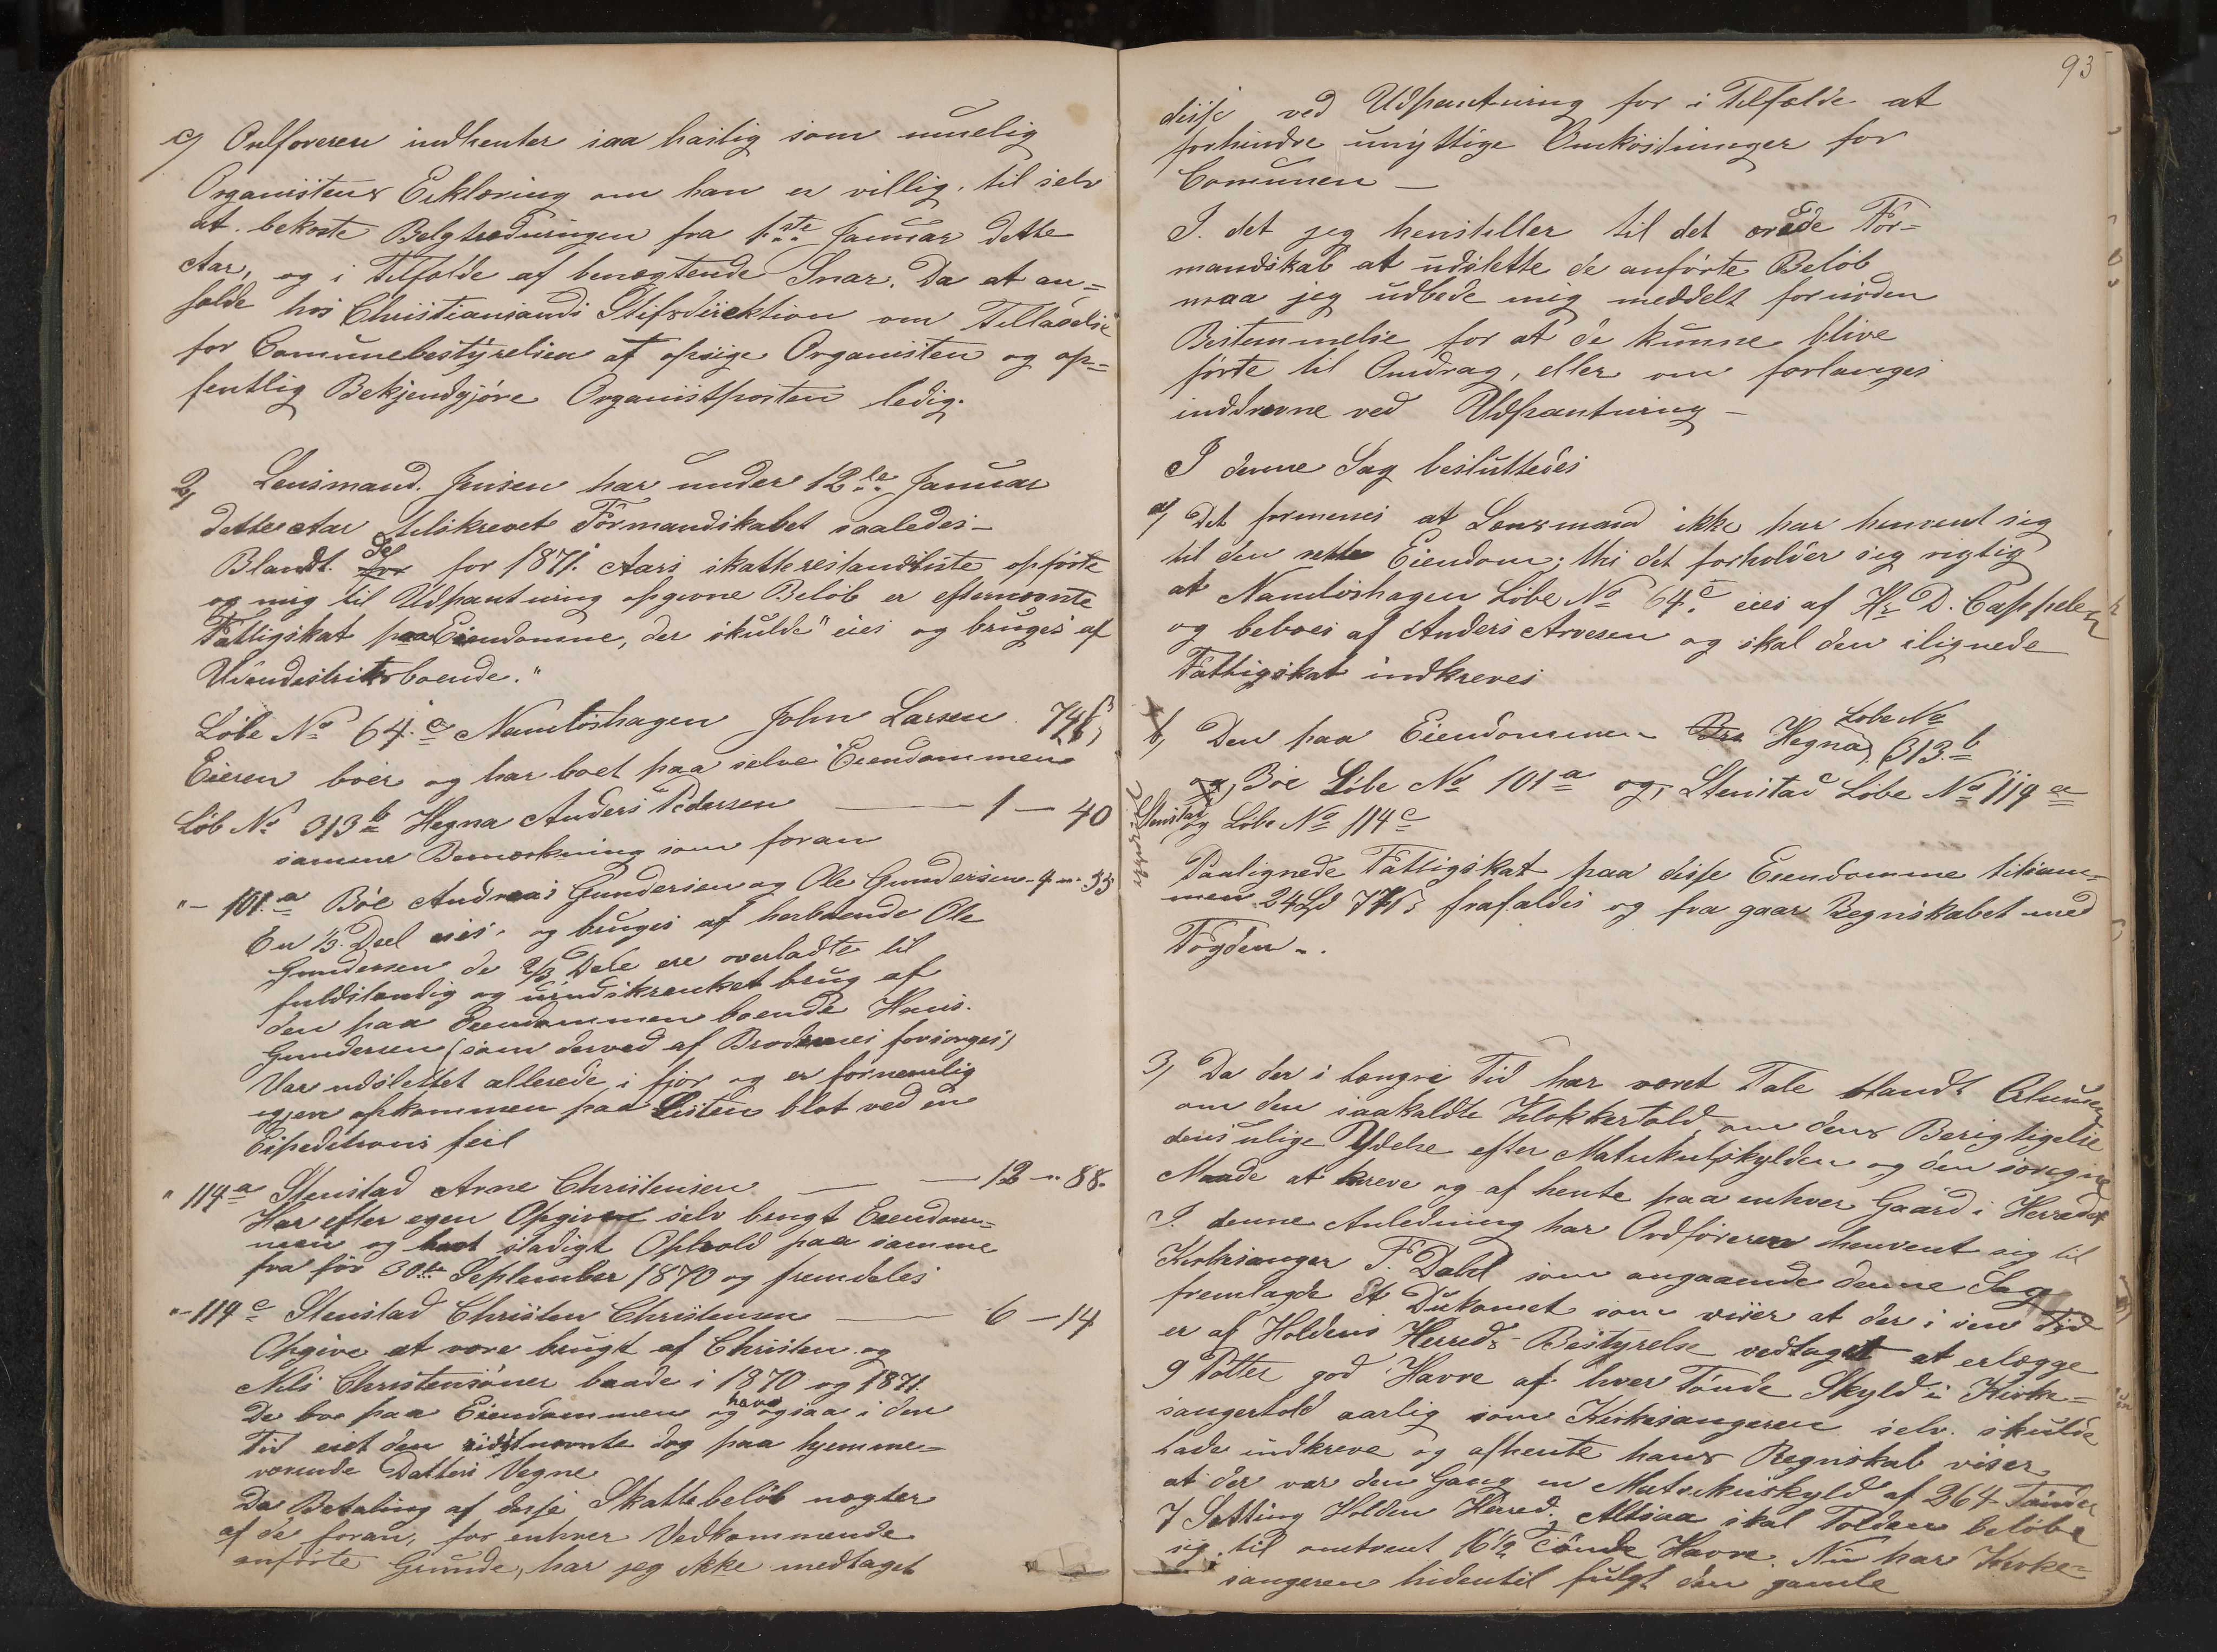 c) Ordføreren indhenter saa hastig som muelig
Organistens Erklæring om han er villig til selv
at bekoste Belgtrædningen fra 1ste Januar dette
Aar, og i Tilfælde af benægtende Svar. Da at an=
holde hos Christiansands Stiftsdirektion om Tilladelse
for Comunebestyrelsen at opsige Organisten og of=
fentlig Bekjendgjøre Organistposten ledig.
2) Lensmand Jensen har under 12te Januar
dette Aar tilskrevet Formandskabet saaledes –
Blandt de for 1871 Aars skatterestandsliste opførte
og mig til Udpantning opgivne Beløb er efternævnte
Fattigskat paa Eiendomme, der skulde "eies og bruges af
Udendistriktsboende."
Løbe No 64 c Namløshagen John Larsen 74 ß
Eieren boer og har boet paa selve Eiendommen
Løb No 313 b Hegna Anders Pedersen — 1 — 40
samme Bemærkning som foran
"– 101 a Bøe Andreas Gundersen og Ole Gundersen – 4 – 33
En 1/3 Deel eies og bruges af herboende Ole
Gundersen de 2/3 Dele ere overladte til
fuldstændig og uindskrænket brug af
den paa Eiendommen boende Hans
Gundersen (som derved af Brødrenes forsørges)
Var udslettet allerede i fjor og er fornemlig
igjen opkommen paa Listen blot ved en
Expeditions feil
" 114 a Stenstad Arne Christensen — — 12 – 88
Har efter egen Opgivende selv brugt Eiendom=
men og havt stadigt Ophold paa samme
fra før 30te September 1870 og fremdeles
"– 114 c Stenstad Christen Christensen — 6 – 14
Opgive at være brugt af Christen og
Nils Christensøner baade i 1870 og 1871.
De boe paa Eiendommen og have ogsaa i den
Tid eiet den sidstnævnte dog paa hjemme=
værende Datters Vegne
Da Betaling af disse Skattebeløb nægter
af de foran, for enhver Vedkommende
anførte Grunde, har jeg ikke medtaget
93
disse ved Udpantning for i Tilfælde at
forhindre unyttige Omkostninger for
Comunen —
I det jeg henstiller til det ærede For=
mandskab at udslette de anførte Beløb
maa jeg udbede mig meddelt fornøden
Bestemmelse for at de kunne blive
førte til Omdrag, eller om forlanges
inddrevne ved Udpantning –
I denne Sag besluttedes
a) Det formenes at Lensmand ikke har henvent sig
til den rette Eiendom; thi det forholder sig rigtig
at Namløshagen Løbe No 64 c eies af Hr D. Cappelen
og beboes af Anders Arvesen og skal den ilignede
Fattigskat indkreves
b) Den paa Eiendommen Hegna Løbe No 313 b
og Bøe Løbe No 101 a og Stenstad Løbe No 114 a
Stenstad og Løbe No 114 c
Paalignede Fattigskat paa disse Eiendomme tilsam=
men 24 Spd 71 ß frafaldes og fra gaar Regnskabet med
Fogden –.
3) Da der i længre Tid har været Tale blandt Almuen
om den saakaldte Klokkertold, om dens Berigtigelse
dens ulige Ydelse efter Matrikulskylden og den særegne
Maade at kreve og af hente paa enhver Gaard i Herredet
I denne Anledning har Ordføreren henvent sig til
Kirkesanger T. Dahl som angaaende denne Sag
fremlagde Et Dokumet som viser at der i sin Tid
er af Holdens Herreds-Bestyrelse vedtaget at erlægge
9 Potter god Havre af hver Tønde Skyld i Kirke=
sangertold aarlig som Kirkesangeren selv skulde
lade indkreve og afhente hans Regnskab viser
at der var den Gang en Matrikulskyld af 264 Tønder
7 Setting Holden Herred. Altsaa skal Tolden beløbe
sig til omtrent 16 1/2 Tønde Havre. Nu har Kirke=
sangeren hidentil fulgt den gamle